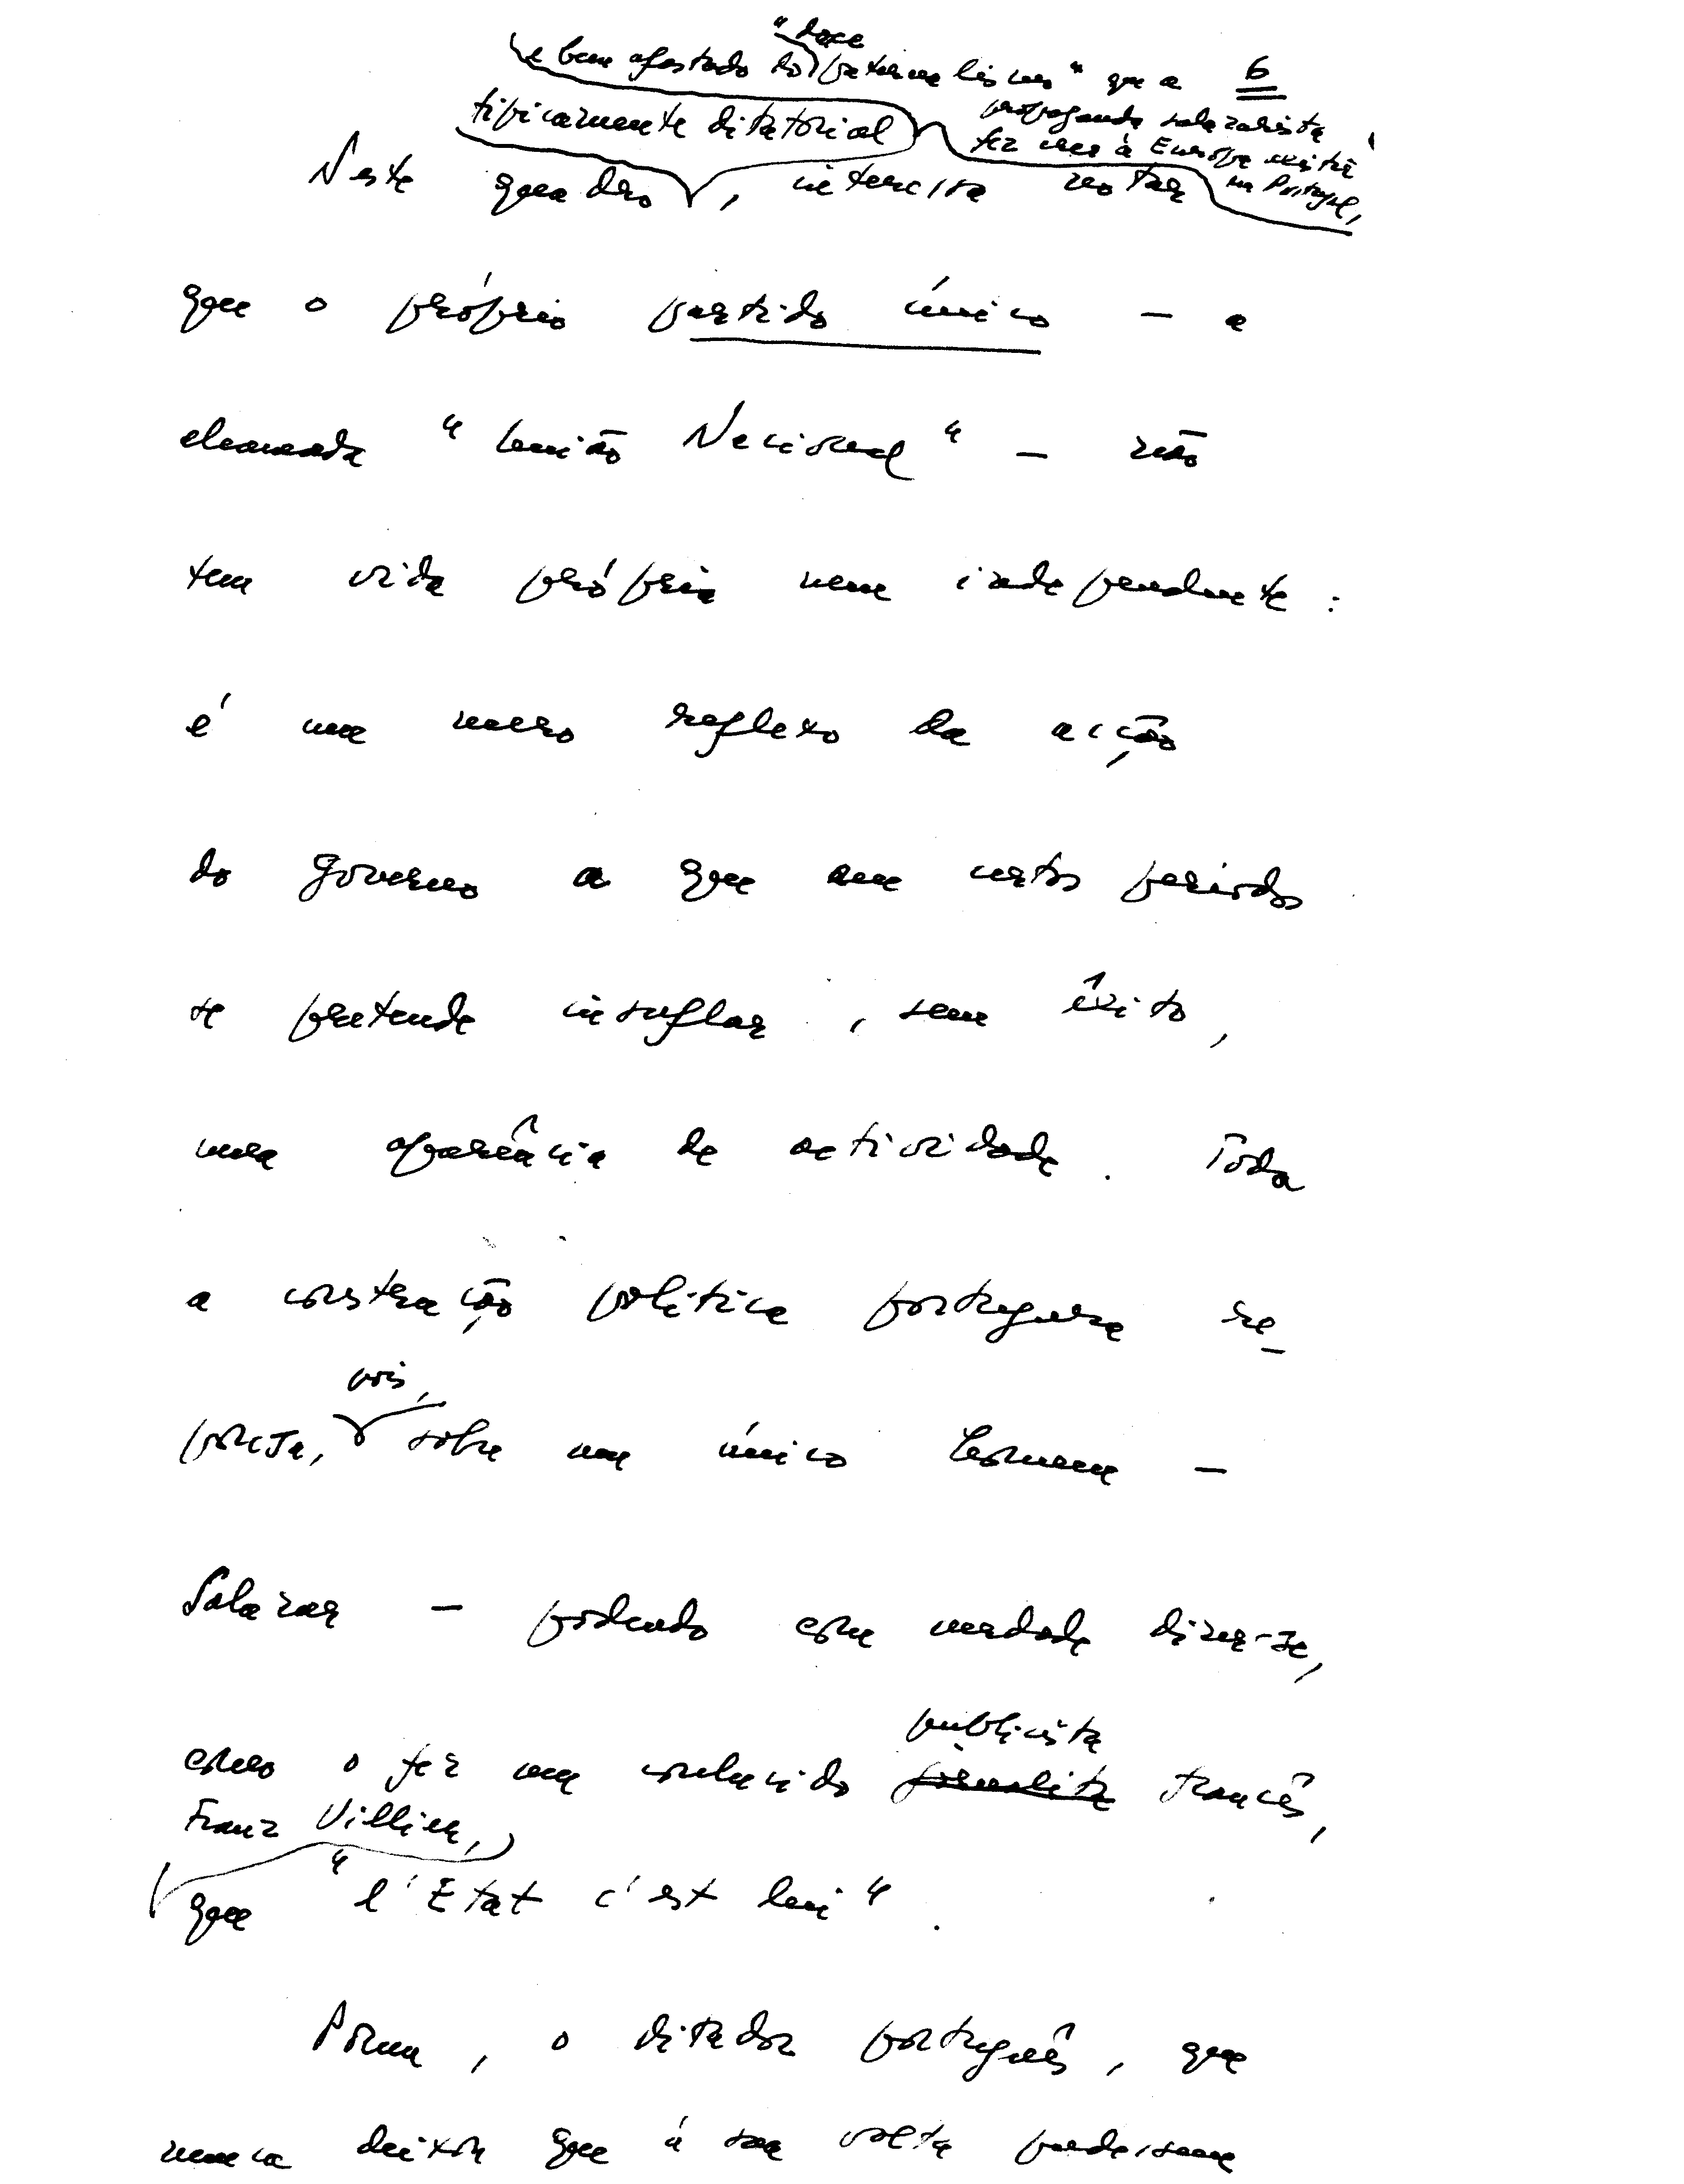 "doce
e bem afastado do paternalismo" que a 6
tipicamente ditatorial propaganda salazarista
fez crer à Europa existir
Neste quadro, interessa notar em Portugal,
que o próprio partido único – a
chamada "União Nacional" – não
tem vida própria nem independente :
é um mero reflexo da acção
do governo a que em certos períodos
se pretende insuflar, sem êxito,
uma aparência de actividade. Toda
a construção política portuguesa re-
pois,
pousa, sobre um único homem –
Salazar – podendo com verdade dizer-se,
publicista
como o fez um conhecido jornalista francês,
Franz Villier,
que "l'Etat c'est lui".
Porém, o ditador português, que
nunca deixou que à sua volta pudessem